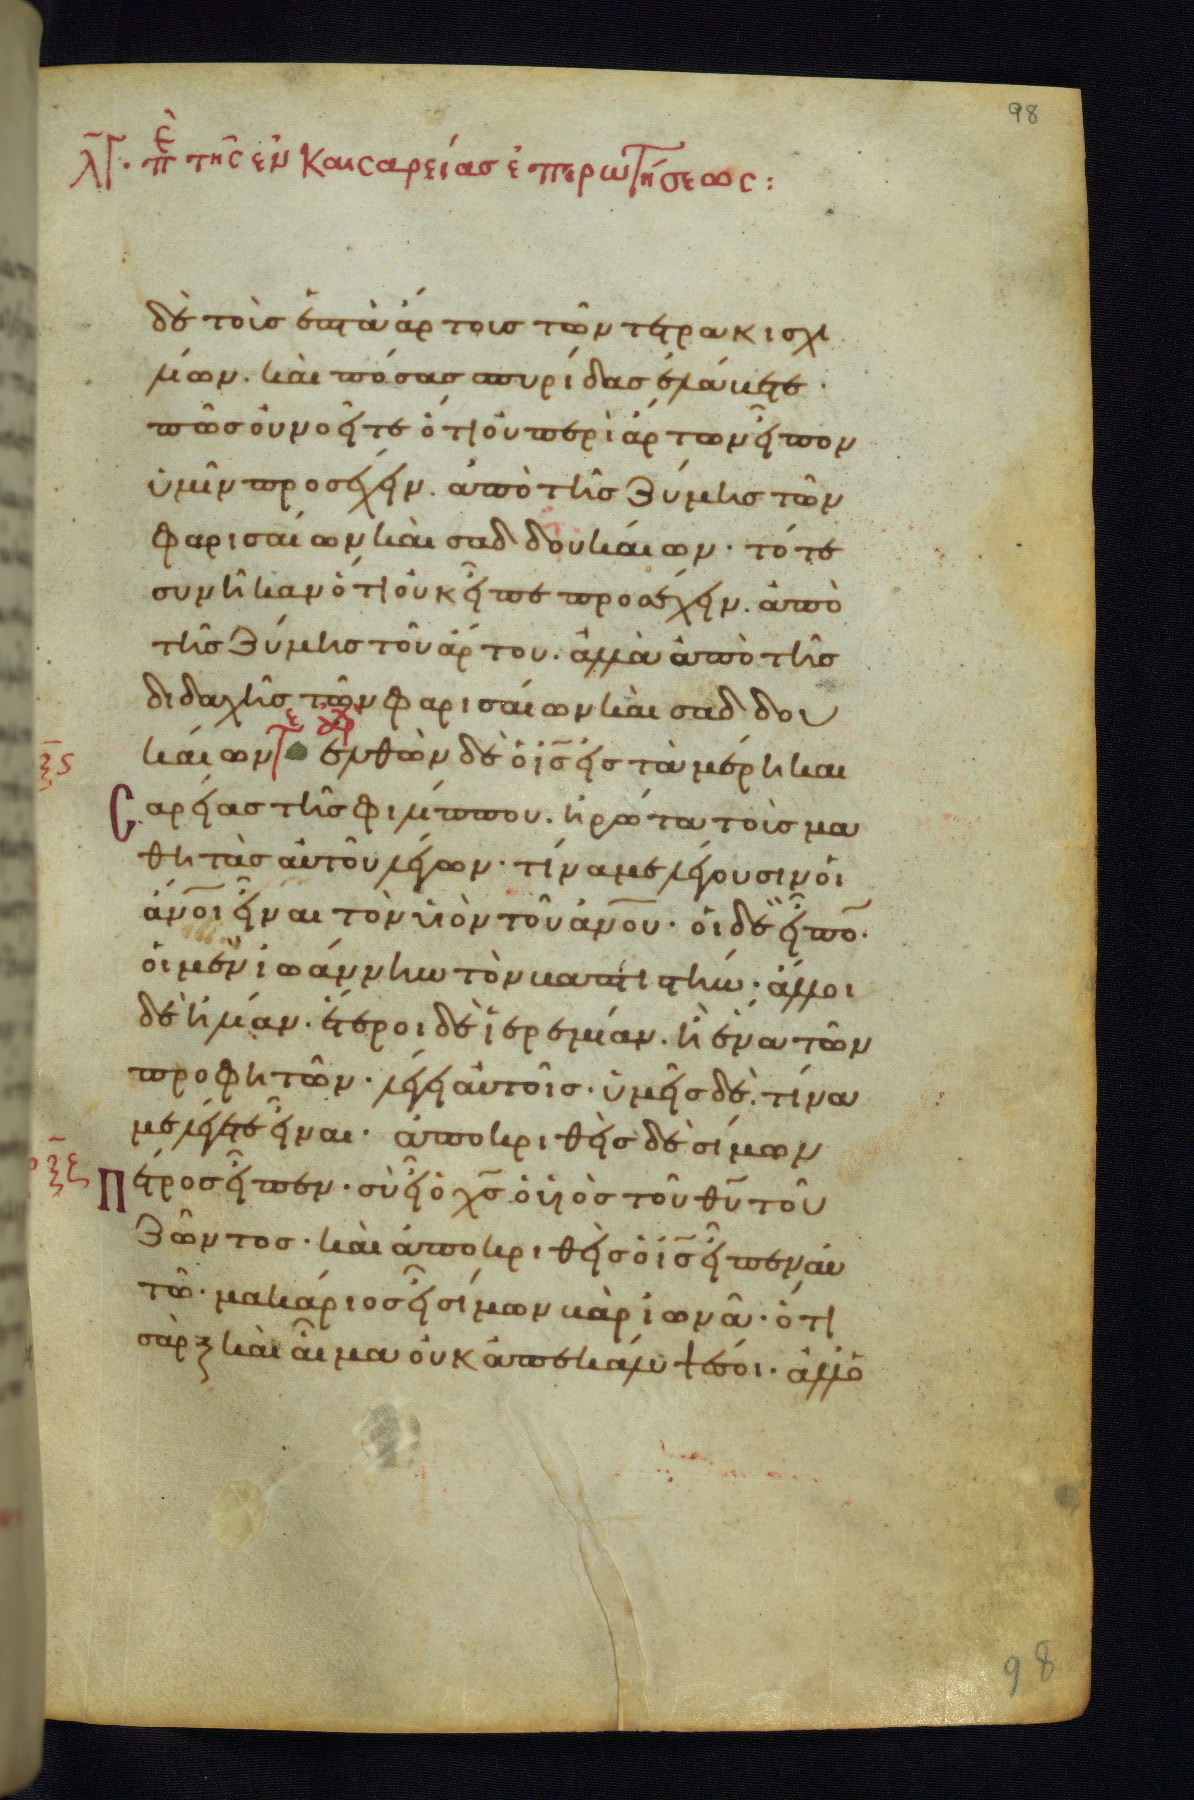 98
λγ. πε της εν Καισαρείας ἐπερωτήσεως:
δὲ τοὺς ἑπτὰ ἄρτους τῶν τετρακισχι
λίων. καὶ πόσας σπυρίδας ἐλάβετε.
πῶς οὐ νοεῖτε ὅτι οὐ περὶ ἄρτων εἶπον
ὑμῖν προσέχειν. ἀπὸ τῆς ζύμης τῶν
φαρισαίων καὶ σαδδουκαίων. τότε
συνῆκαν ὅτι οὐκ εἶπε προσέχειν. ἀπὸ
τῆς ζύμης τοῦ ἄρτου. ἀλλὰ ἀπὸ τῆς
διδαχῆς τῶν φαρισαίων καὶ σαδδου
καίων ἐλθὼν δὲ ὁ ις εἰς τὰ μέρη και
ξς
σαρείας τῆς φιλίππου. ἠρώτα τοὺς μα
θητὰς αὐτοῦ λέγων. τίνα με λέγουσιν οἱ
ἄνοι εἶναι τὸν υἱὸν τοῦ ἀνου. οἱ δὲ εἶπο.
οἱ μὲν ἰωάννην τὸν βαπτιστήν. ἄλλοι
δὲ ἠλίαν. ἕτεροι δὲ ἱερεμίαν. ἢ ἕνα τῶν
προφητῶν. λέγει αὐτοῖς. ὑμεῖς δὲ. τίνα
με λέγετε εἶναι. ἀποκριθεὶς δὲ σίμων
ρξς
Πέτρος εἶπεν. σὺ εἶ ὁ χς ὁ υἱὸς τοῦ θυ τοῦ
ζῶντος. καὶ ἀποκριθεὶς ὁ ις εἶπεν αὐ
τῶ. μακάριος εἶ σίμων βὰρ ἰωνᾶ. ὅτι
σὰρξ καὶ αἷμα οὐκ ἀπεκάλυψέ σοι. ἀλλ ὁ
98